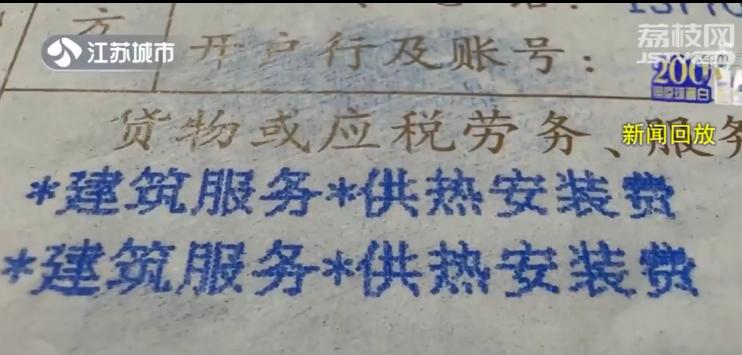 江苏城市
荔枝网
方
开户行及账号：
200
新闻回放
货物或应税劳务、服务
*建筑服务*供热安装费
*建筑服务*供热安装费